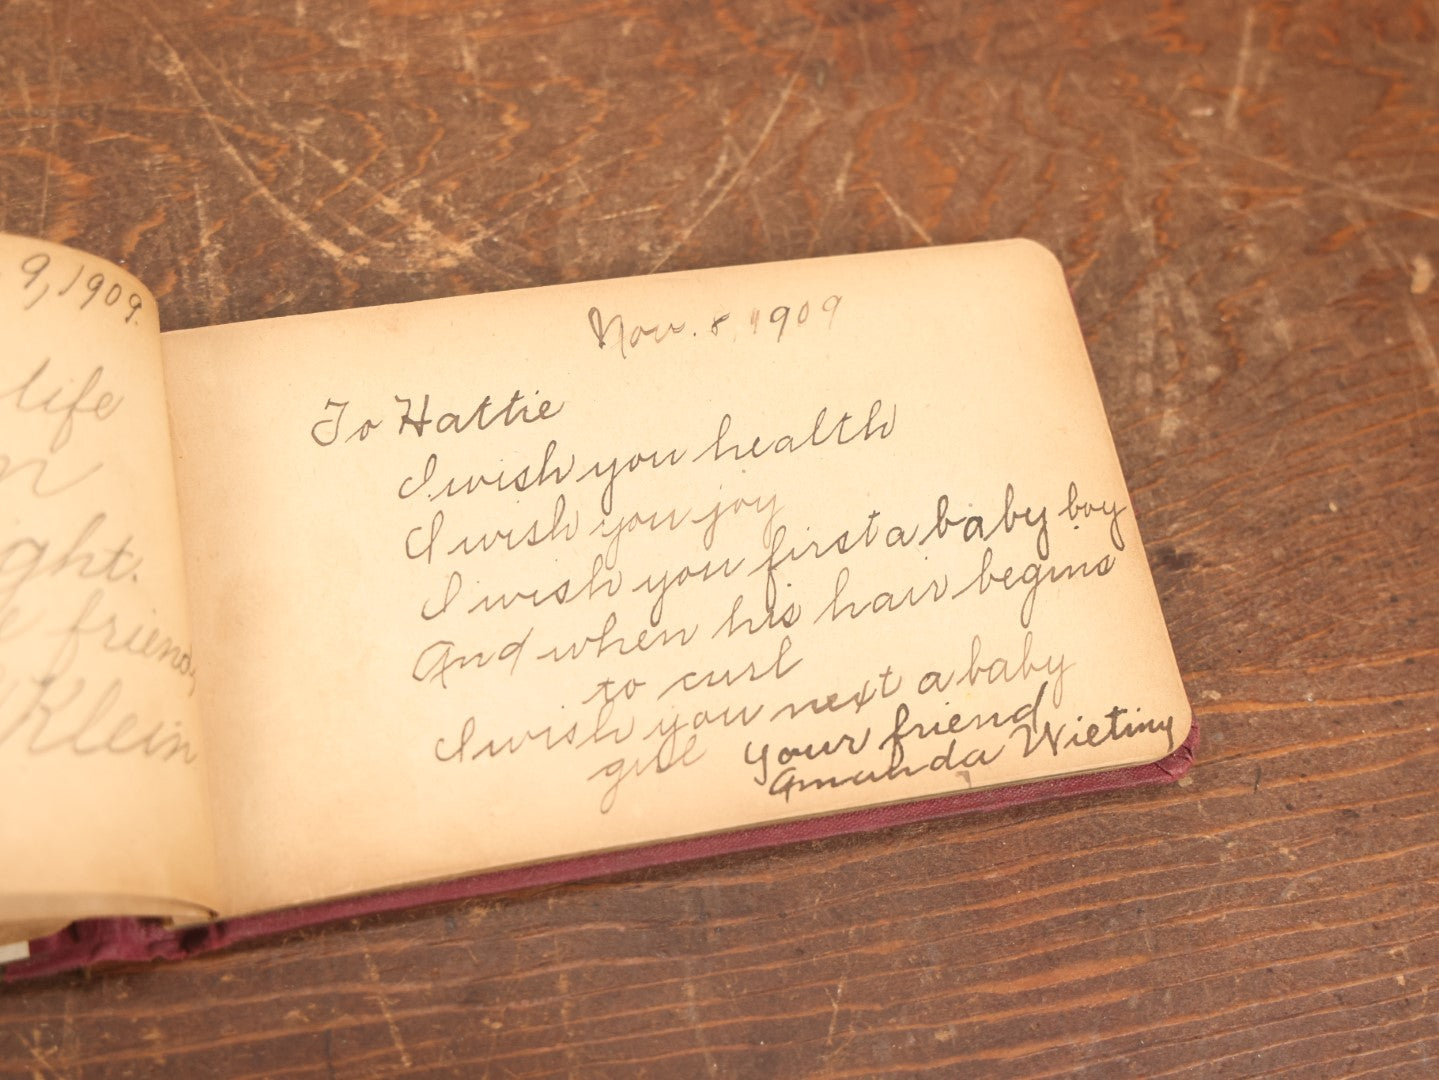 9, 1909.
life
n
ght.
friend,
Klein
Nov. 8, 1909
To Hattie
I wish you health
I wish you joy
I wish you first a baby boy
And when his hair begins
to curl
I wish you next a baby
girl
Your friend
Amanda Wieting